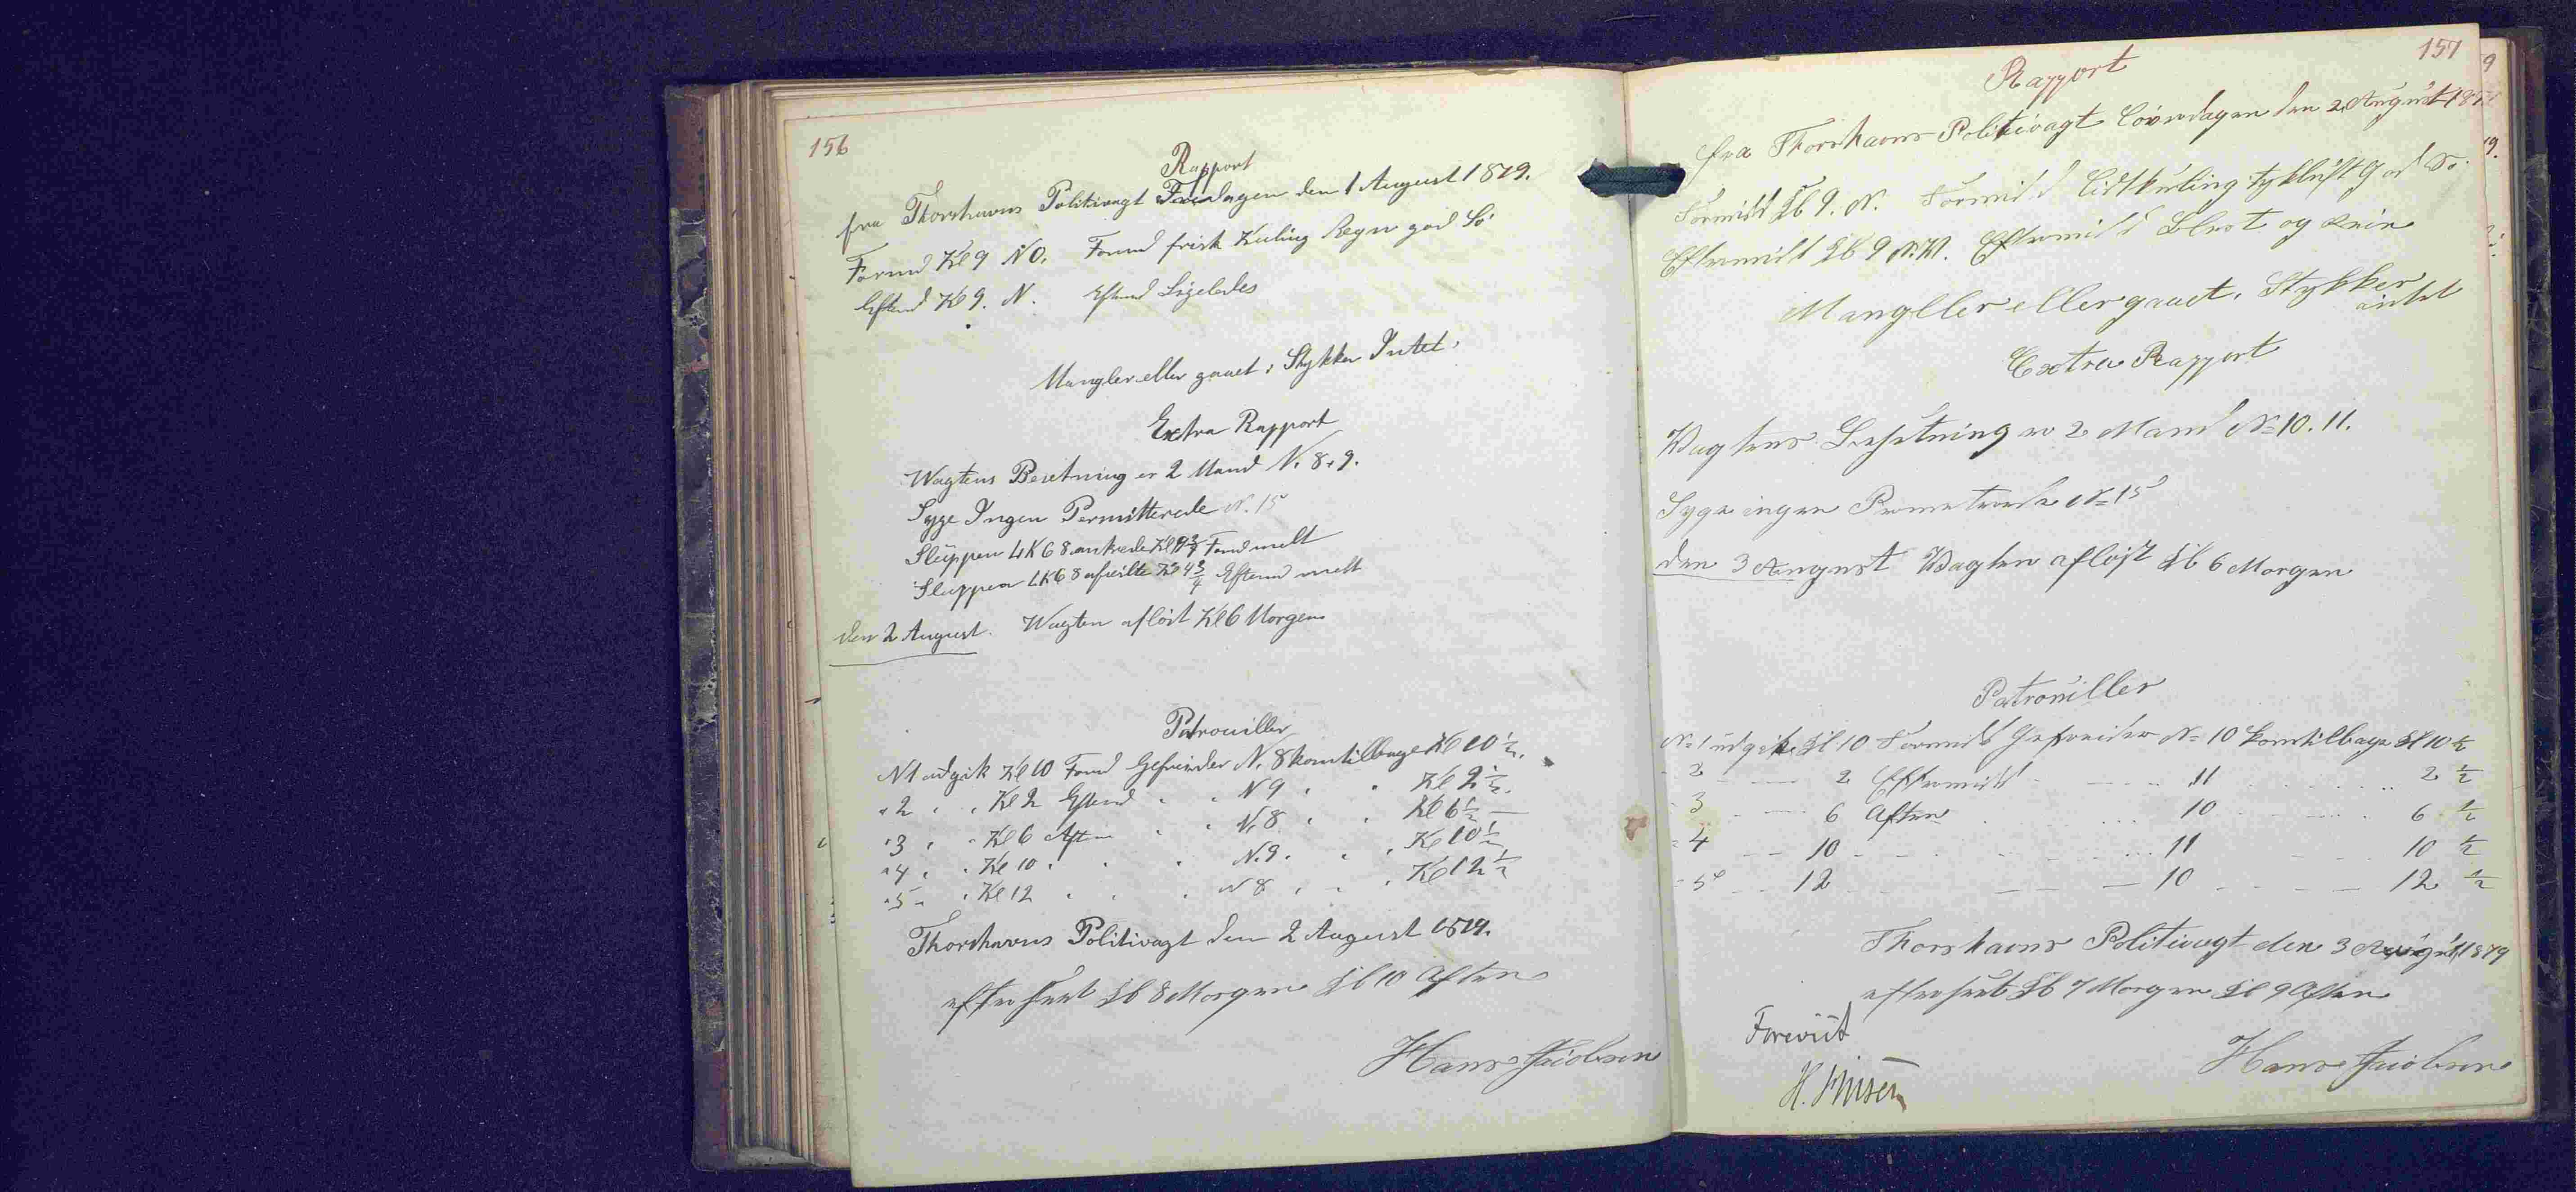 156
Rapport
fra Thorshavns Politivagt Fredagen den 1 August 1879.
Formd Kl 9 NO. Formd frisk Kuling Regn god Sö
Eftmd Kl 9. N. Eftmd Ligeledes
Mangler eller gaaet i Stykker Intet.
Extra Rapport
Wagtens Besetning er 2 Mand N. 8 & 9.
Syge Ingen Permitterede N. 15
Sluppen LK 68 ankrede Kl 9 3/4 Formd melt
Sluppen LK 68 afseilte Kl 4 3/4 Eftmd melt
den 2 August. Wagten aflöst Kl 6 Morgen
Patrouiller
N 1 udgik Kl 10 Formd Gefreider N. 8 kom tilbage Kl 10 1/2.
" 2 " " Kl 2 Eftmd " " N 9 " " Kl 2 1/2.
" 3 " " Kl 6 Aften " " N. 8 " " Kl 6 1/2
" 4 " " Kl 10 " " " N. 9 " " Kl 10 1/2
" 5 " " Kl 12 " " " N 8 " " Kl 12 1/2
Thorshavns Politivagt den 2 August 1879.
efterseet Kl 8 Morgen Kl 10 Aften
Hans Jacobsen
157
Rapport
fra Thorshavns Politivagt Löverdagen den 2 August 187
Formidd Kl 9. N. Formidd Lidt kuling tyk luft God Sö.
Eftermidd Kl 9 N.W. Eftermidd
Mangller eller gaaet. Stykker
intet
Extra Rapport
Wagtens Besetning er 2 Mand No 10. 11.
Syge ingen No 15
den 3 August Wagten aflöst Kl 6 Morgen
Patrouiller
No 1 udgik Kl 10 Formidd Gefreider No 10 kom tilbage Kl 10 1/2
- 2 - - 2 Eftermidd - - 11 - - 2 1/2
- 3 - - 6 Aften - - 10 - - 6 1/2
- 4 - - 10 - - - 11 - - 10 1/2
- 5 - - 12 - - - 10 - - 12 1/2
Thorshavns Politivagt den 3 August 1879
efterseet Kl 7 Morgen Kl 9 Aften
Foreviist
Hans Jacobsen
H.